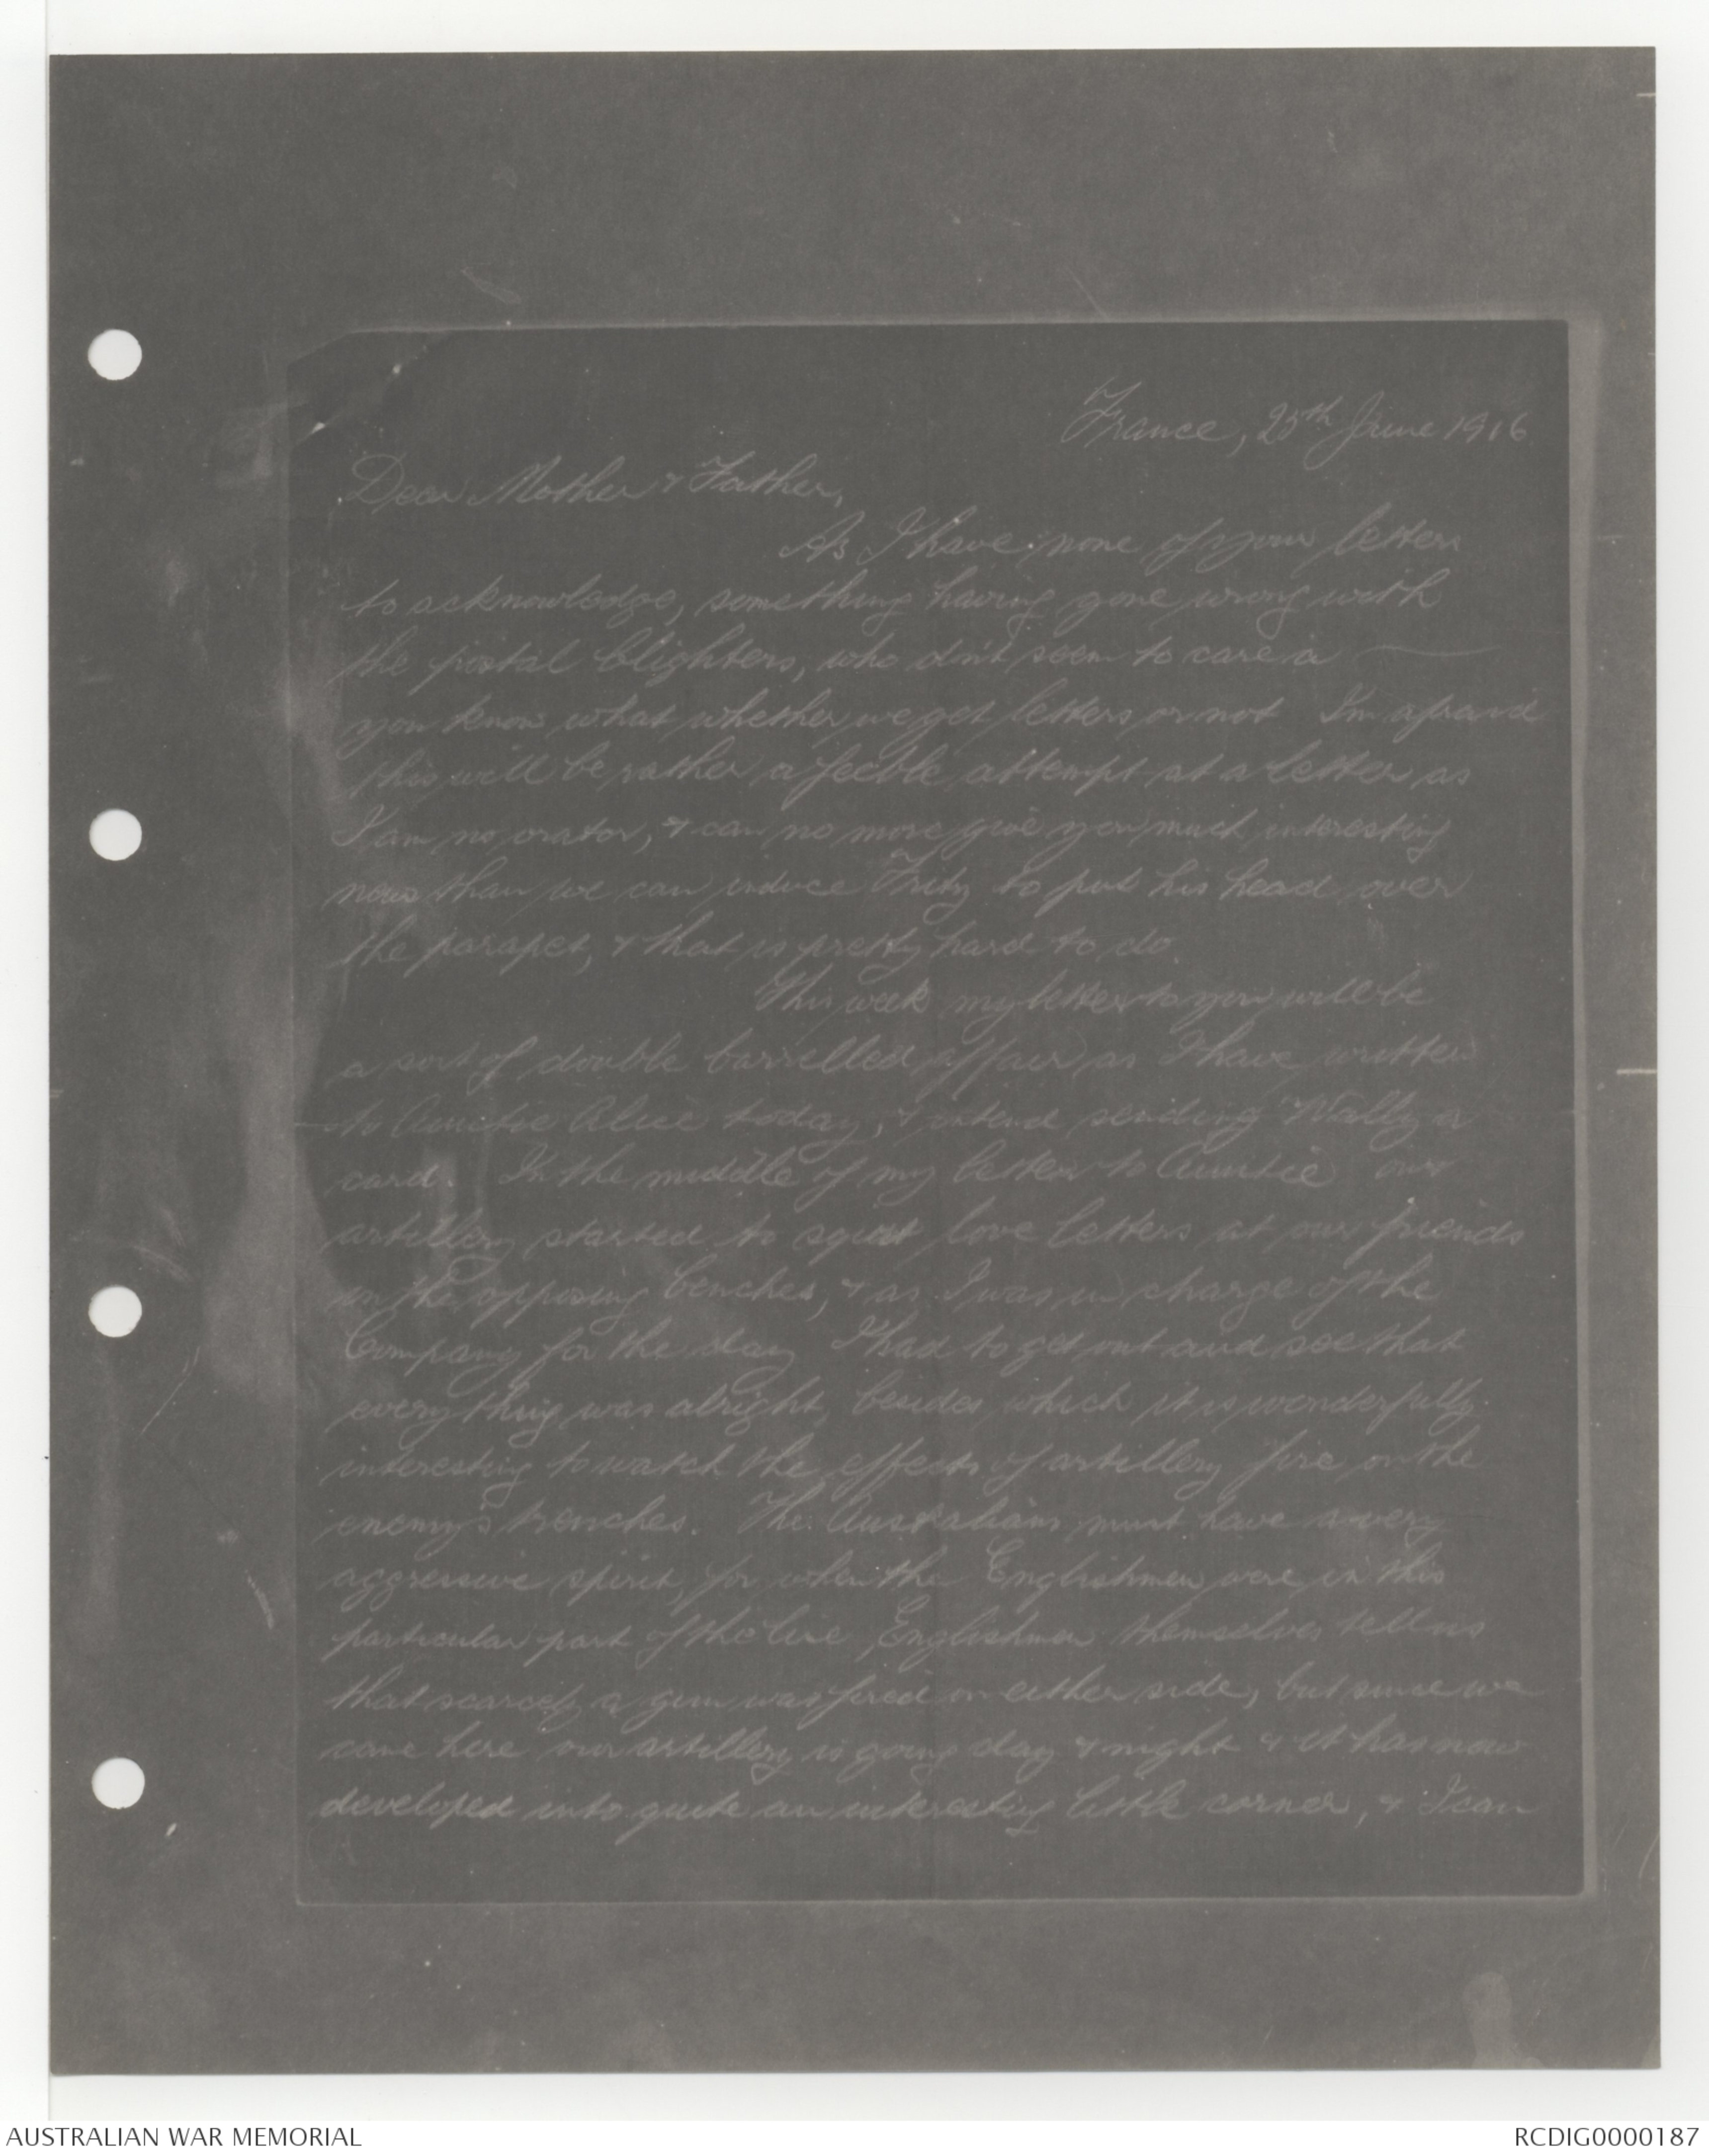 France, 25th June 1916
Dear Mother & Father,
As I have none of your letters
to acknowledge, something having gone wrong with
the postal blighters, who don't seem to care a ——
you know what whether we get letters or not I'm afraid
this will be rather a feeble attempt at a letter as
I am no orator, & can no more give you much interesting
news than we can induce Fritz to put his head over
the parapet, & that is pretty hard to do.
This week my letter to you will be
a sort of double barrelled affair as I have written
to Auntie Alice today, & intend sending Wally a
card. In the middle of my letter to Auntie our
artillery started to squirt love letters at our friends
in the opposing benches, & as I was in charge of the
Company for the day I had to get out and see that
everything was alright, besides which it is wonderfully
interesting to watch the effects of artillery fire on the
enemy's trenches. The Australians must have a very
aggressive spirit, for when the Englishmen were in this
particular part of the line, Englishmen themselves tell us
that scarcely a gun was fired on either side, but since we
came here our artillery is going day & night & it has now
developed into quite an interesting little corner, & I can
AUSTRALIAN WAR MEMORIAL
RCDIG0000187